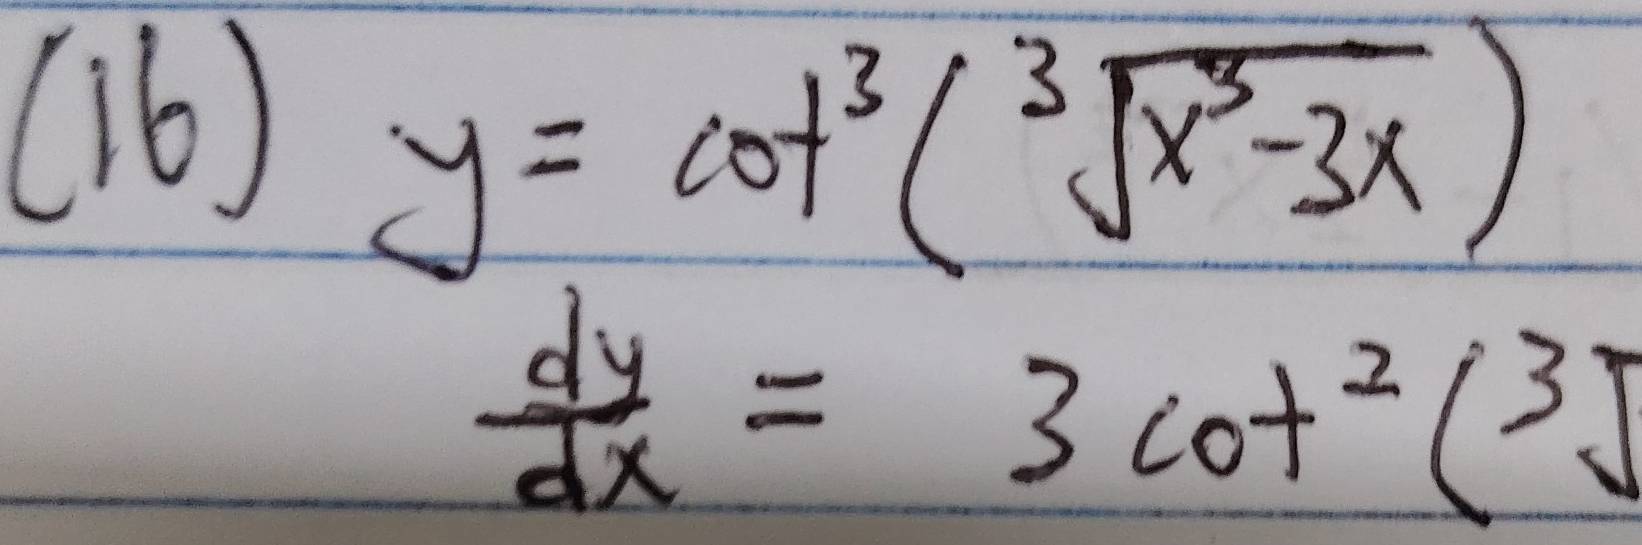 (16) y = cot³(³√x³-3x)
dy/dx = 3 cot²(³√